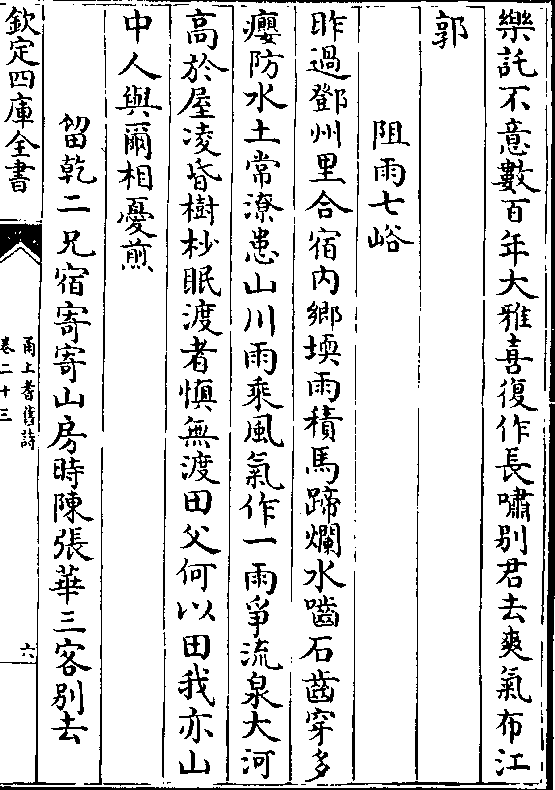 樂託不意數百年大雅喜復作長嘯别君去爽氣布江
郭
阻雨七峪
昨過鄧州里合宿内鄉堧雨積馬蹄爛水嚙石齒穿多
癭防水土常潦患山川雨乘風氣作一雨爭流泉大河
高於屋凌昏樹杪眠渡者慎無渡田父何以田我亦山
中人與爾相憂煎
留乾二兄宿寄寄山房時陳張華三客别去
欽定四庫全書
甬上耆舊詩
卷二十三
六